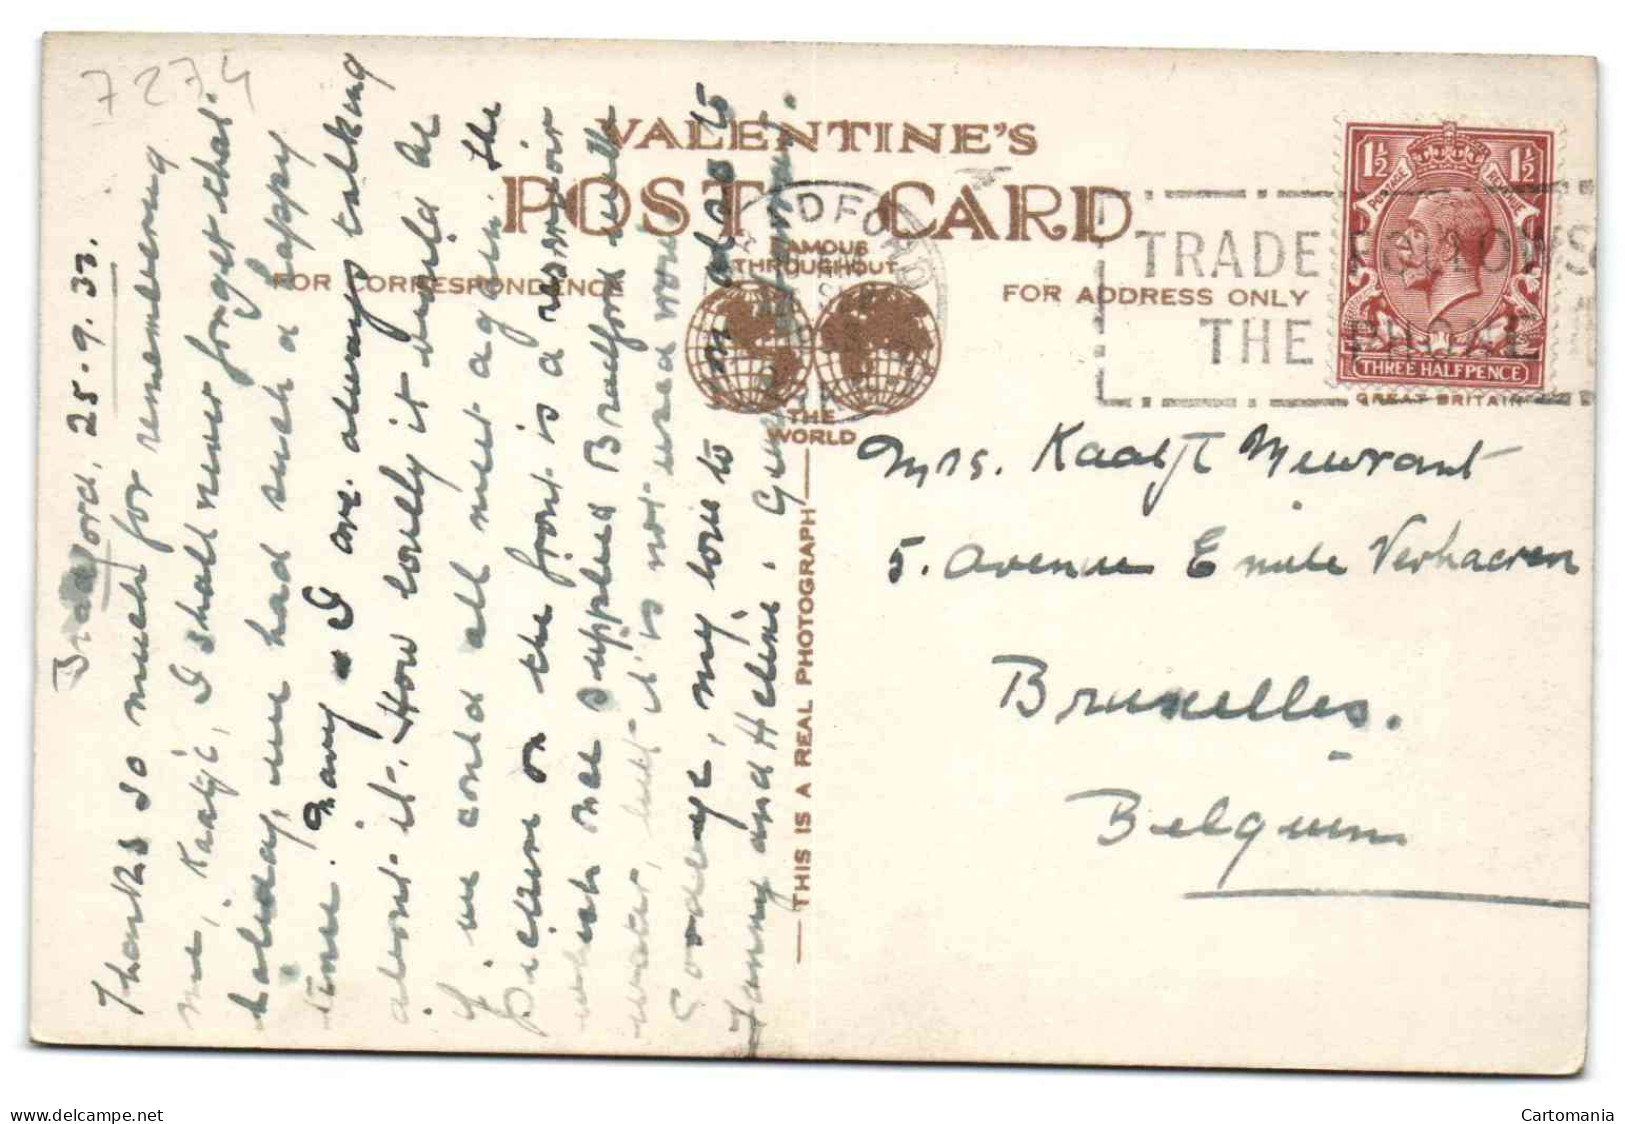 7274
Bradford, 25-9.33.
Thanks so much for remembering
me, Kaatje, I shall never forget that
holiday, we had such a happy
time. Mary & I are always talking
about it. How lovely it would be
if we could all meet again. The
picture on the front is a reservoir
which once supplied Bradford with
water, but it is not used now
Goodbye, my love to you also to
Fanny and Hélène.
VALENTINE'S
POST CARD
FAMOUS
THROUGHOUT
THE
WORLD
FOR CORRESPONDENCE
FOR ADDRESS ONLY
THIS IS A REAL PHOTOGRAPH
BRADFORD
TRADE FOLLOWS
THE PHONE
1½ 1½
POSTAGE REVENUE
THREE HALFPENCE
GREAT BRITAIN
Mrs. Kaatje Meurant
5. Avenue Emile Verhaeren
Bruxelles.
Belgium
www.delcampe.net
Cartomania